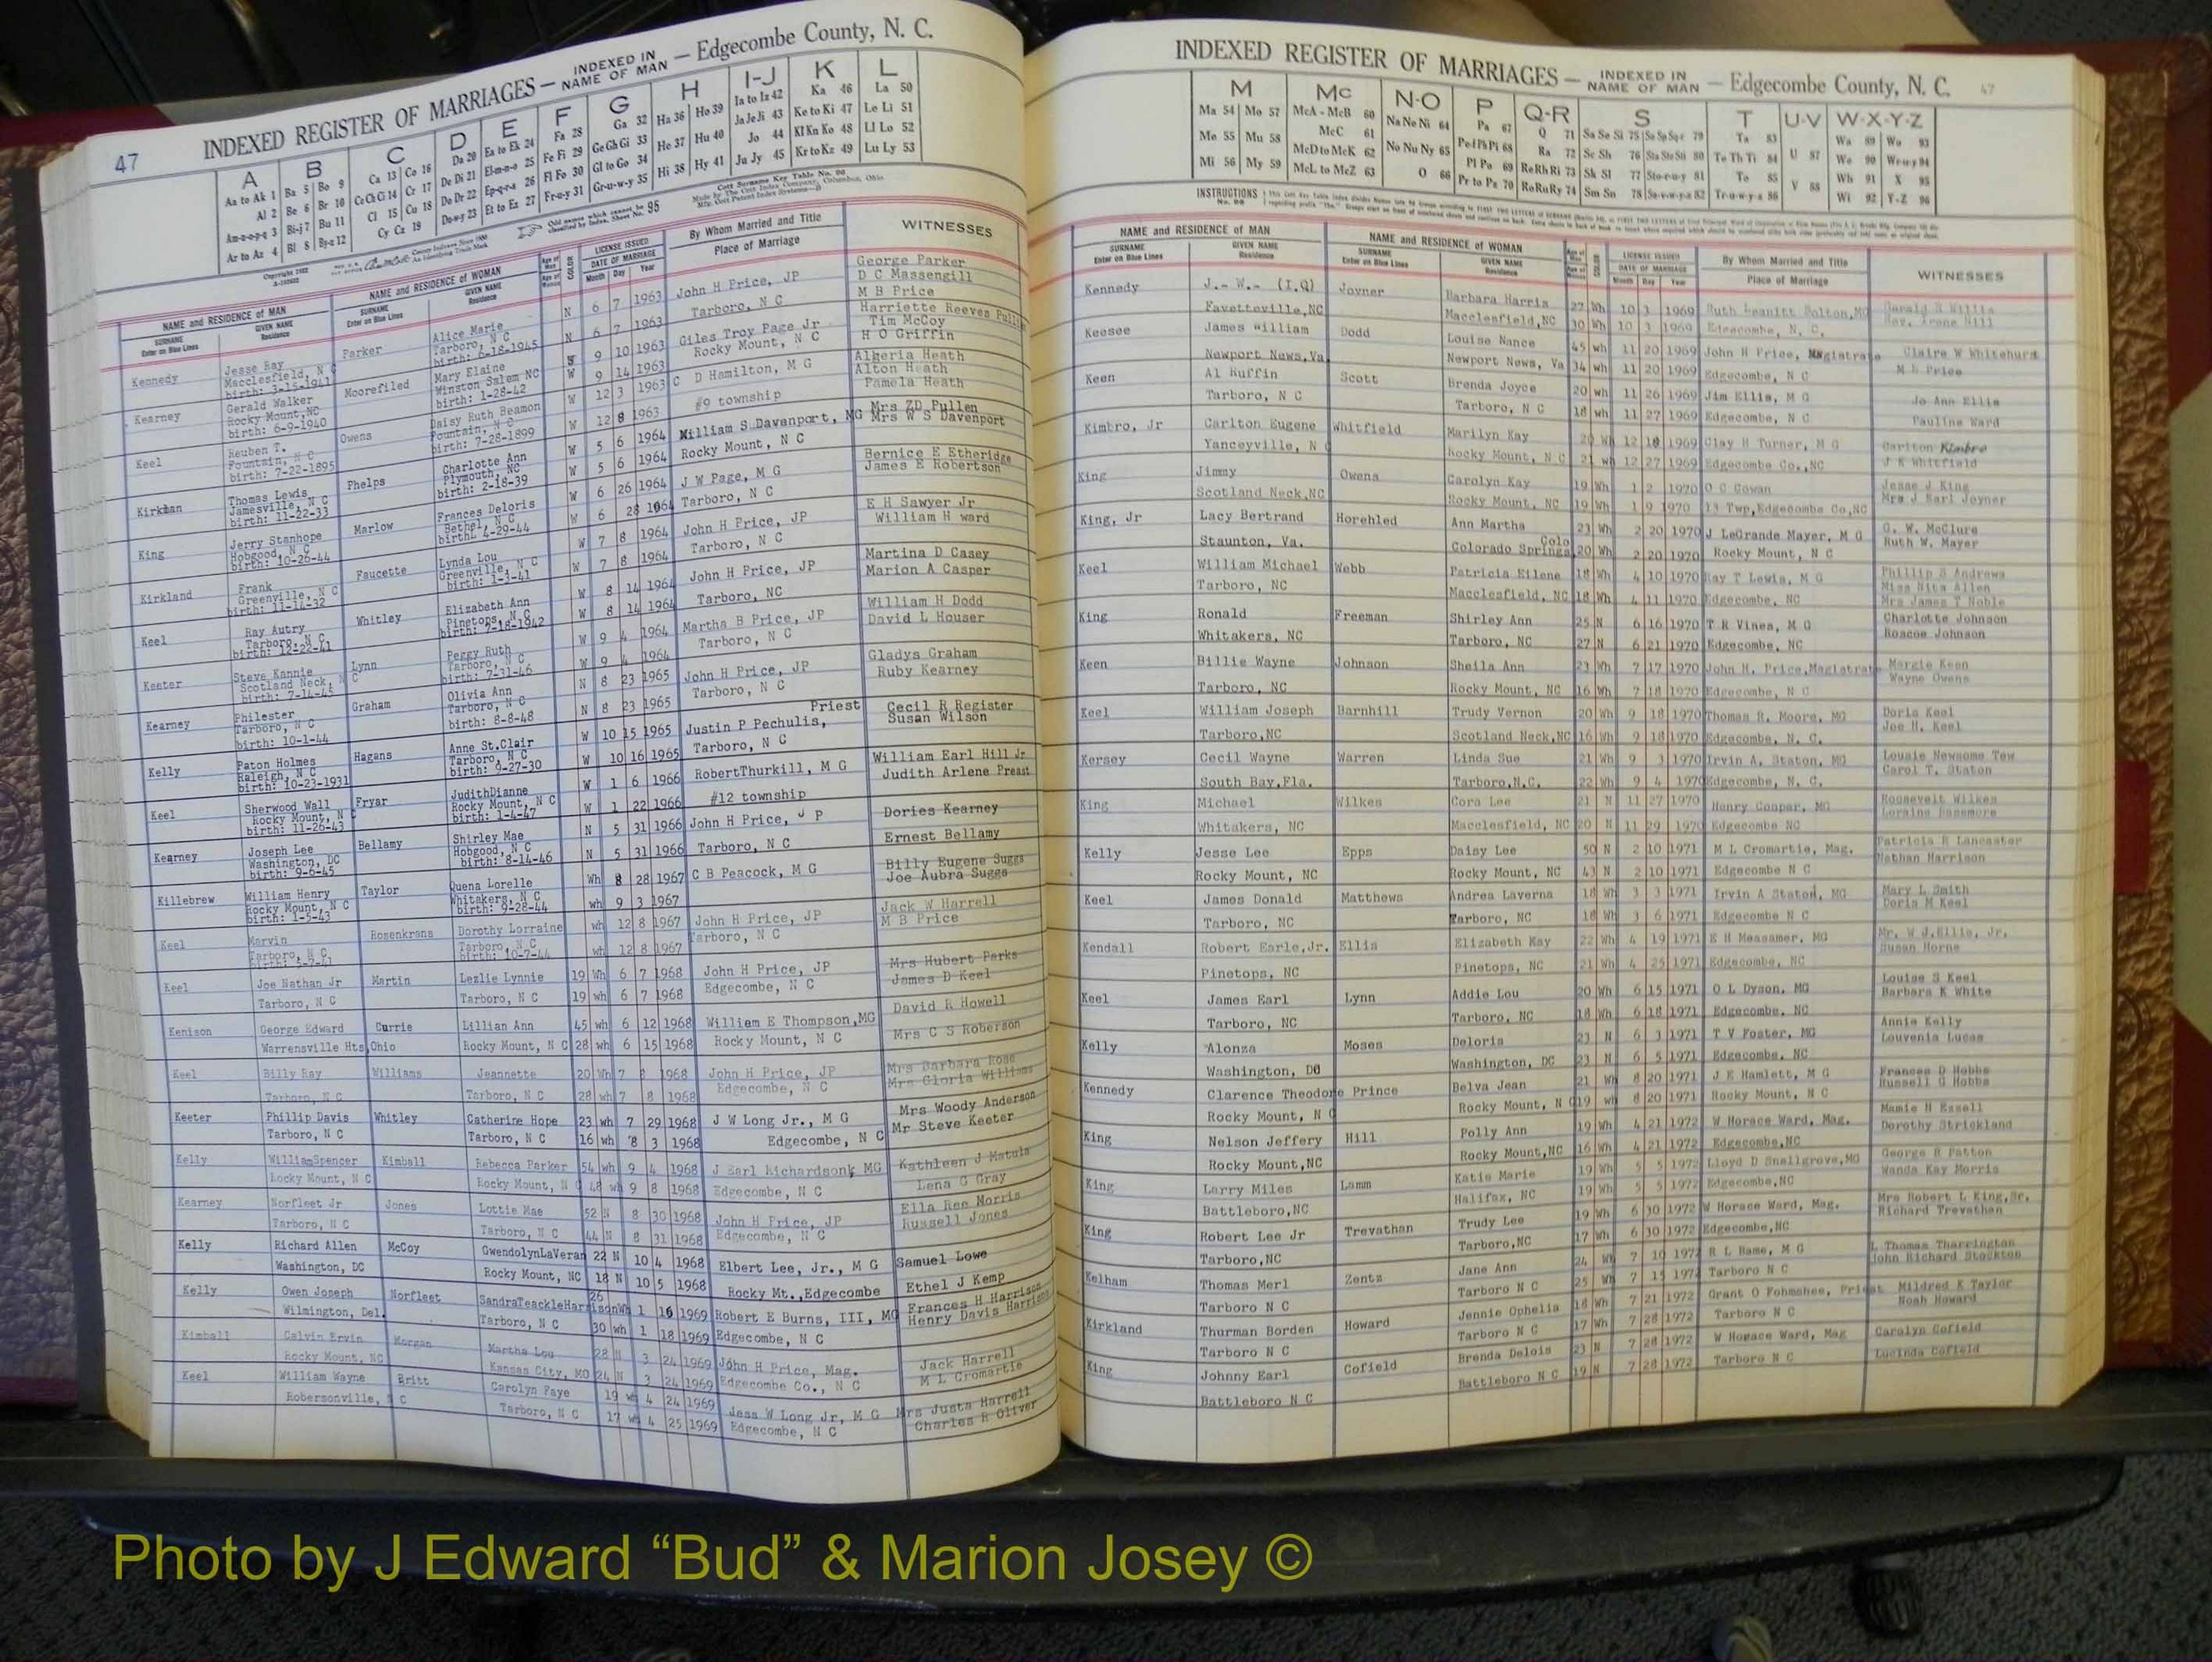 47
INDEXED REGISTER OF MARRIAGES — INDEXED IN NAME OF MAN — Edgecombe County, N. C.
A B C D E F G H I-J K L
Aa to Ak 1 Ba 5 Bo 9 Ca 13 Co 16 Da 20 Ea to Ek 24 Fa 28 Ga 32 Ha 36 Ho 39 Ia to Iz 42 Ka 46 La 50
Al 2 Be 6 Br 10 Ce Ch Ci 14 Cr 17 De Di 21 El-m-n-o 25 Fe Fi 29 Ge Gh Gi 33 He 37 Hu 40 Ja Je Ji 43 Ke to Ki 47 Le Li 51
Am-n-o-p-q 3 Bi-j 7 Bu 11 Cl 15 Cu 18 Do Dr 22 Ep-q-r-s 26 Fl Fo 30 Gl to Go 34 Hi 38 Hy 41 Jo 44 Kl Kn Ko 48 Ll Lo 52
Ar to Az 4 Bl 8 By-z 12 Cy Cz 19 Du-w-y 23 Et to Ez 27 Fr-u-y 31 Gr-u-w-y 35 Ju Jy 45 Kr to Kz 49 Lu Ly 53
NAME and RESIDENCE of MAN NAME and RESIDENCE of WOMAN COLOR LICENSE ISSUED By Whom Married and Title WITNESSES
SURNAME Enter on Blue Lines GIVEN NAME Residence SURNAME Enter on Blue Lines GIVEN NAME Residence DATE OF MARRIAGE Month Day Year Place of Marriage
Kennedy Jesse Ray Parker Alice Marie N 6 7 1963 John H Price, JP George Parker
Macclesfield, N C Tarboro, N C N 6 7 1963 Tarboro, N C D C Massengill
birth: 3-15-1941 birth: 6-18-1945 M B Price
Kearney Gerald Walker Moorefiled Mary Elaine W 9 10 1963 Giles Troy Page Jr Harriette Reeves
Rocky Mount,NC Winston Salem NC W 9 14 1963 Rocky Mount, N C Tim McCoy
birth: 6-9-1940 birth: 1-28-42 H O Griffin
Keel Reuben T. Owens Daisy Ruth Beamon W 12 3 1963 C D Hamilton, M G Algeria Heath
Fountain, N C Fountain, N C W 12 8 1963 #9 township Alton Heath
birth: 7-22-1895 birth: 7-28-1899 Pamela Heath
Kirkman Thomas Lewis Phelps Charlotte Ann W 5 6 1964 William S Davenport, MG Mrs ZD Pullen
Jamesville, N C Plymouth, NC W 5 6 1964 Rocky Mount, N C Mrs W S Davenport
birth: 11-22-33 birth: 2-18-39
King Jerry Stanhope Marlow Frances Deloris W 6 26 1964 J W Page, M G Bernice E Etheridge
Hobgood, N C Bethel, N C W 6 28 1964 Tarboro, N C James E Robertson
birth: 10-26-44 birth: 4-29-44
Kirkland Frank Faucette Lynda Lou W 7 8 1964 John H Price, JP E H Sawyer Jr
Greenville, N C Greenville, N C W 7 8 1964 Tarboro, N C William H ward
birth: 11-14-32 birth: 1-3-41
Keel Ray Autry Whitley Elizabeth Ann W 8 14 1964 John H Price, JP Martina D Casey
Tarboro, N C Pinetops, N C W 8 14 1964 Tarboro, NC Marion A Casper
birth: 12-22-41 birth: 7-18-1942
Keeter Steve Kannie Lynn Peggy Ruth W 9 4 1964 Martha B Price, JP William H Dodd
Scotland Neck, N C Tarboro, N C W 9 4 1964 Tarboro, N C David L Houser
birth: 7-14-45 birth: 7-31-46
Kearney Philester Graham Olivia Ann N 8 23 1965 John H Price, JP Gladys Graham
Tarboro, N C Tarboro, N C N 8 23 1965 Tarboro, N C Ruby Kearney
birth: 10-1-44 birth: 8-8-48
Kelly Paton Holmes Hagans Anne St.Clair W 10 15 1965 Justin P Pechulis, Priest Cecil R Register
Raleigh, N C Tarboro, N C W 10 16 1965 Tarboro, N C Susan Wilson
birth: 10-23-1931 birth: 9-27-30
Keel Sherwood Wall Fryar JudithDianne W 1 6 1966 RobertThurkill, M G William Earl Hill Jr
Rocky Mount, N C Rocky Mount, N C W 1 22 1966 #12 township Judith Arlene Preast
birth: 11-26-43 birth: 1-4-47
Kearney Joseph Lee Bellamy Shirley Mae N 5 31 1966 John H Price, J P Dories Kearney
Washington, DC Hobgood, N C N 5 31 1966 Tarboro, N C Ernest Bellamy
birth: 9-6-45 birth: 8-14-46
Killebrew William Henry Taylor Quena Lorelle Wh 8 28 1967 C B Peacock, M G Billy Eugene Suggs
Rocky Mount, N C Whitakers, N C wh 9 3 1967 Joe Aubra Suggs
birth: 1-5-43 birth: 9-28-44
Keel Marvin Rosenkrans Dorothy Lorraine wh 12 8 1967 John H Price, JP Jack W Harrell
Tarboro, N C Tarboro, N C wh 12 8 1967 Tarboro, N C M B Price
birth: 10-7-44
Keel Joe Nathan Jr Martin Lezlie Lynnie 19 Wh 6 7 1968 John H Price, JP Mrs Hubert Parks
Tarboro, N C Tarboro, N C 19 wh 6 7 1968 Edgecombe, N C James D Keel
Kenison George Edward Currie Lillian Ann 45 wh 6 12 1968 William E Thompson,MG David R Howell
Warrensville Hts Ohio Rocky Mount, N C 28 wh 6 15 1968 Rocky Mount, N C Mrs C S Roberson
Keel Billy Ray Williams Jeannette 20 Wh 7 8 1968 John H Price, JP Mrs Barbara Rose
Tarboro, N C Tarboro, N C 28 wh 7 8 1968 Edgecombe, N C Mrs Gloria Williams
Keeter Phillip Davis Whitley Catherine Hope 23 wh 7 29 1968 J W Long Jr., M G Mrs Woody Anderson
Tarboro, N C Tarboro, N C 16 wh 8 3 1968 Edgecombe, N C Mr Steve Keeter
Kelly WilliamSpencer Kimball Rebecca Parker 54 wh 9 4 1968 J Earl Richardson, MG Kathleen J Matula
Rocky Mount, N C Rocky Mount, N C 48 wh 9 8 1968 Edgecombe, N C Lena G Gray
Kearney Norfleet Jr Jones Lottie Mae 52 N 8 30 1968 John H Price, JP Ella Ree Morris
Tarboro, N C Tarboro, N C 44 N 8 31 1968 Edgecombe, N C Russell Jones
Kelly Richard Allen McCoy GwendolynLaVeran 22 N 10 4 1968 Elbert Lee, Jr., M G Samuel Lowe
Washington, DC Rocky Mount, NC 18 N 10 5 1968 Rocky Mt.,Edgecombe Ethel J Kemp
Kelly Owen Joseph Norfleet SandraTeackleHarrison 26 Wh 1 16 1969 Robert E Burns, III, MG Frances H Harrison
Wilmington, Del. Tarboro, N C 30 wh 1 18 1969 Edgecombe, N C Henry Davis Harrison
Kimball Calvin Ervin Morgan Martha Lou 28 N 3 24 1969 John H Price, Mag. Jack Harrell
Rocky Mount, NC Kansas City, MO 24 N 3 24 1969 Edgecombe Co., N C M L Cromartie
Keel William Wayne Britt Carolyn Faye 19 wh 4 24 1969 Jess W Long Jr, M G Mrs Justa Harrell
Robersonville, N C Tarboro, N C 17 wh 4 25 1969 Edgecombe, N C Charles R Oliver
INDEXED REGISTER OF MARRIAGES — INDEXED IN NAME OF MAN — Edgecombe County, N. C. 47
M Mc N-O P Q-R S T U-V W-X-Y-Z
Ma 54 Mo 57 McA - McB 60 Na Ne Ni 64 Pa 67 Q 71 Sa Se Si 75 So Sp Sq-r 79 Ta 83 U 87 Wa 89 Wo 93
Me 55 Mu 58 McC 61 No Nu Ny 65 Pe Ph Pi 68 Ra 72 Sc Sh 76 Sta Ste Sti 80 Te Th Ti 84 V 88 We 90 Wr-u-y 94
Mi 56 My 59 McD to McK 62 O 66 Pl Po 69 Re Rh Ri 73 Sk Sl 77 Sto-r-u-y 81 To 85 Wh 91 X 95
McL to McZ 63 Pr to Pz 70 Ro Ru Ry 74 Sm Sn 78 Su-v-w-y-z 82 Tr-u-w-y-z 86 Wi 92 Y-Z 96
INSTRUCTIONS
NAME and RESIDENCE of MAN NAME and RESIDENCE of WOMAN COLOR LICENSE ISSUED By Whom Married and Title WITNESSES
SURNAME Enter on Blue Lines GIVEN NAME Residence SURNAME Enter on Blue Lines GIVEN NAME Residence DATE OF MARRIAGE Month Day Year Place of Marriage
Kennedy J.- W.- (I.Q) Joyner Barbara Harris 27 Wh 10 3 1969 Ruth Leanitt Bolton,MG
Fayetteville,NC Macclesfield,NC 30 Wh 10 3 1969 Edgecombe, N. C.
Keesee James William Dodd Louise Nance 45 wh 11 20 1969 John H Price, Magistrate Claire W Whitehurst
Newport News,Va Newport News, Va 34 wh 11 20 1969 Edgecombe, N C M B Price
Keen Al Ruffin Scott Brenda Joyce 20 wh 11 26 1969 Jim Ellis, M G Jo Ann Ellis
Tarboro, N C Tarboro, N C 18 wh 11 27 1969 Edgecombe, N C Pauline Ward
Kimbro, Jr Carlton Eugene Whitfield Marilyn Kay 20 Wh 12 18 1969 Clay H Turner, M G Carlton Kimbro
Yanceyville, N C Rocky Mount, N C 21 wh 12 27 1969 Edgecombe Co.,NC J K Whitfield
King Jimmy Owens Carolyn Kay 19 Wh 1 2 1970 O C Gowan Jesse J King
Scotland Neck,NC Rocky Mount, NC 19 Wh 1 9 1970 13 Twp,Edgecombe Co,NC Mrs J Earl Joyner
King, Jr Lacy Bertrand Horehled Ann Martha 23 Wh 2 20 1970 J LeGrande Mayer, M G G. W. McClure
Staunton, Va. Colorado Springs, Colo 20 Wh 2 20 1970 Rocky Mount, N C Ruth W. Mayer
Keel William Michael Webb Patricia Eilene 18 Wh 4 10 1970 Ray T Lewis, M G Phillip S Andrews
Tarboro, NC Macclesfield, NC 18 Wh 4 11 1970 Edgecombe, NC Miss Nita Allen
Mrs James T Noble
King Ronald Freeman Shirley Ann 25 N 6 16 1970 T R Vines, M G Charlotte Johnson
Whitakers, NC Tarboro, NC 27 N 6 21 1970 Edgecombe, NC Roscoe Johnson
Keen Billie Wayne Johnson Sheila Ann 23 Wh 7 17 1970 John H. Price,Magistrate Margie Keen
Tarboro, NC Rocky Mount, NC 16 Wh 7 18 1970 Edgecombe, N C Wayne Owens
Keel William Joseph Barnhill Trudy Vernon 20 Wh 9 18 1970 Thomas R. Moore, MG Doris Keel
Tarboro,NC Scotland Neck,NC 16 Wh 9 18 1970 Edgecombe, N. C. Joe H. Keel
Kersey Cecil Wayne Warren Linda Sue 21 Wh 9 3 1970 Irvin A. Staton, MG Lousie Newsome Tew
South Bay,Fla. Tarboro,N.C. 22 Wh 9 4 1970 Edgecombe, N. C. Carol T. Staton
King Michael Wilkes Cora Lee 21 N 11 27 1970 Henry Cooper, MG Roosevelt Wilkes
Whitakers, NC Macclesfield, NC 20 N 11 29 1970 Edgecombe NC
Kelly Jesse Lee Epps Daisy Lee 50 N 2 10 1971 M L Cromartie, Mag. Patricia R Lancaster
Rocky Mount, NC Rocky Mount, NC 43 N 2 10 1971 Edgecombe N C Nathan Harrison
Keel James Donald Matthews Andrea Laverna 18 Wh 3 3 1971 Irvin A Staton, MG Mary L Smith
Tarboro, NC Tarboro, NC 18 Wh 3 6 1971 Edgecombe N C Doris M Keel
Kendall Robert Earle,Jr. Ellis Elizabeth Kay 22 Wh 4 19 1971 E H Measamer, MG Mr. W J.Ellis, Jr.
Pinetops, NC Pinetops, NC 21 Wh 4 25 1971 Edgecombe, NC Susan Horne
Keel James Earl Lynn Addie Lou 20 Wh 6 15 1971 O L Dyson, MG Louise S Keel
Tarboro, NC Tarboro, NC 18 Wh 6 18 1971 Edgecombe, NC Barbara K White
Kelly Alonza Moses Deloris 23 N 6 3 1971 T V Foster, MG Annie Kelly
Washington, DC Washington, DC 23 N 6 5 1971 Edgecombe, NC Louvenia Lucas
Kennedy Clarence Theodore Prince Belva Jean 21 Wh 8 20 1971 J E Hamlett, M G Frances D Hobbs
Rocky Mount, N C Rocky Mount, N C 19 wh 8 20 1971 Rocky Mount, N C Russell G Hobbs
King Nelson Jeffery Hill Polly Ann 19 Wh 4 21 1972 W Horace Ward, Mag. Mamie H Ezzell
Rocky Mount,NC Rocky Mount,NC 16 Wh 4 21 1972 Edgecombe,NC Dorothy Strickland
King Larry Miles Lamm Katie Marie 19 Wh 5 5 1972 Lloyd D Snellgrove,MG George R Patton
Battleboro,NC Halifax, NC 19 Wh 5 5 1972 Edgecombe,NC Wanda Kay Morris
King Robert Lee Jr Trevathan Trudy Lee 19 Wh 6 30 1972 W Horace Ward, Mag. Mrs Robert L King,Sr.
Tarboro,NC Tarboro,NC 17 Wh 6 30 1972 Edgecombe,NC Richard Trevathan
Kelham Thomas Merl Zentz Jane Ann 24 Wh 7 10 1972 R L Bame, M G L Thomas Tharrington
Tarboro N C Tarboro N C 25 Wh 7 15 1972 Tarboro N C John Richard Stockton
Kirkland Thurman Borden Howard Jennie Ophelia 18 Wh 7 21 1972 Grant O Fohmshee, Priest Mildred K Taylor
Tarboro N C Tarboro N C 17 Wh 7 28 1972 Tarboro N C Noah Howard
King Johnny Earl Cofield Brenda Delois 23 N 7 28 1972 W Horace Ward, Mag Carolyn Cofield
Battleboro N C Battleboro N C 19 N 7 28 1972 Tarboro N C Lucinda Cofield
Photo by J Edward “Bud” & Marion Josey ©